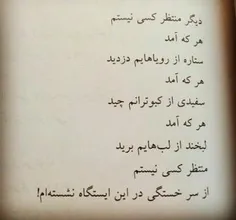 دیگر منتظر کسی نیستم
هر که آمد
ستاره از رویاهایم دزدید
هر که آمد
سفیدی از کبوترانم چید
هر که آمد
لبخند از لب‌هایم برید
منتظر کسی نیستم
از سر خستگی در این ایستگاه نشسته‌ام!